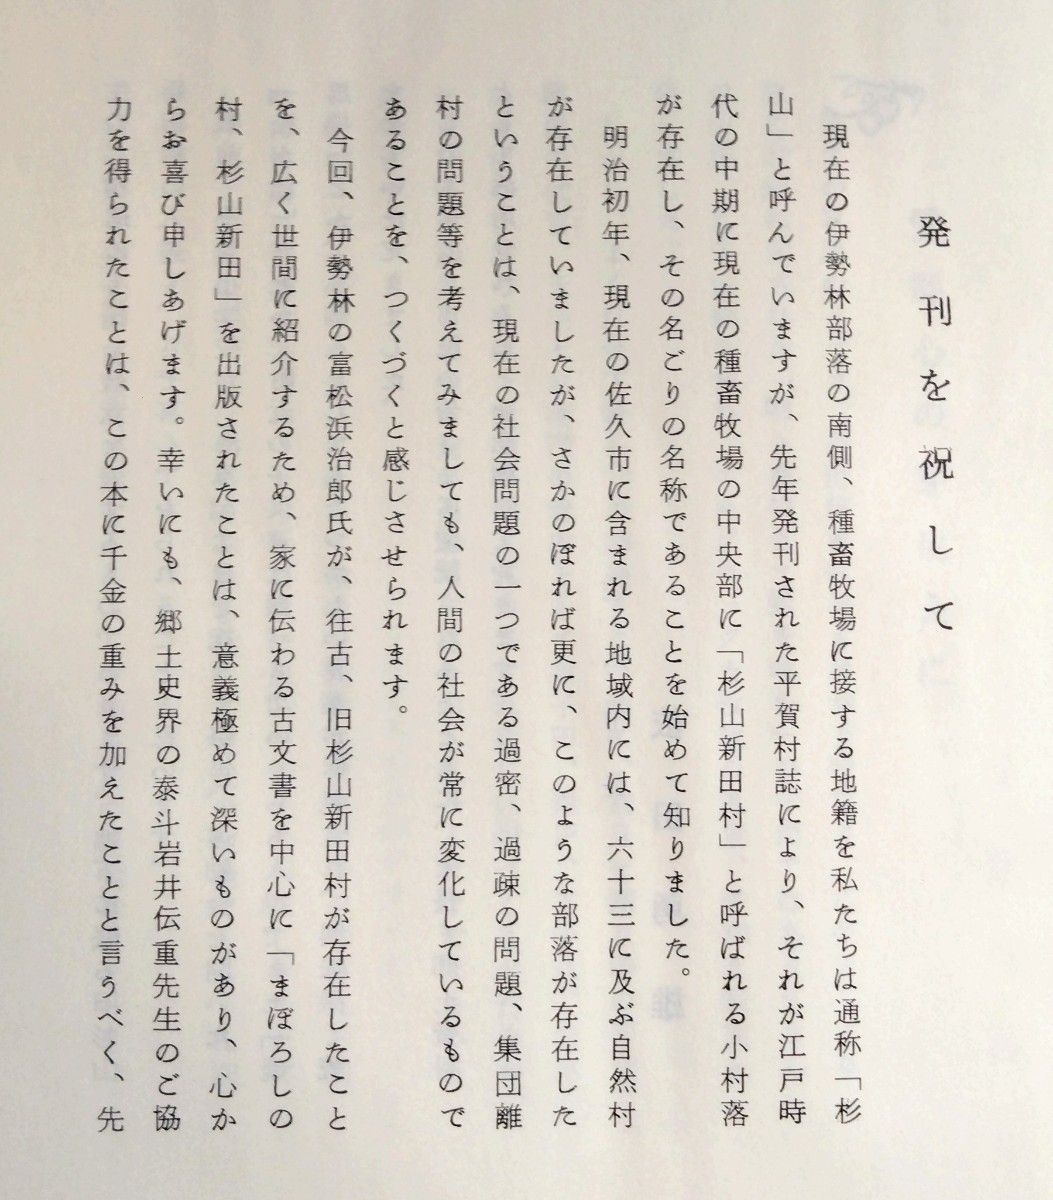 発刊を祝して
現在の伊勢林部落の南側、種畜牧場に接する地籍を私たちは通称「杉
山」と呼んでいますが、先年発刊された平賀村誌により、それが江戸時
代の中期に現在の種畜牧場の中央部に「杉山新田村」と呼ばれる小村落
が存在し、その名ごりの名称であることを始めて知りました。
明治初年、現在の佐久市に含まれる地域内には、六十三に及ぶ自然村
が存在していましたが、さかのぼれば更に、このような部落が存在した
ということは、現在の社会問題の一つである過密、過疎の問題、集団離
村の問題等を考えてみましても、人間の社会が常に変化しているもので
あることを、つくづくと感じさせられます。
今回、伊勢林の富松浜治郎氏が、往古、旧杉山新田村が存在したこと
を、広く世間に紹介するため、家に伝わる古文書を中心に「まぼろしの
村、杉山新田」を出版されたことは、意義極めて深いものがあり、心か
らお喜び申しあげます。幸いにも、郷土史界の泰斗岩井伝重先生のご協
力を得られたことは、この本に千金の重みを加えたことと言うべく、先